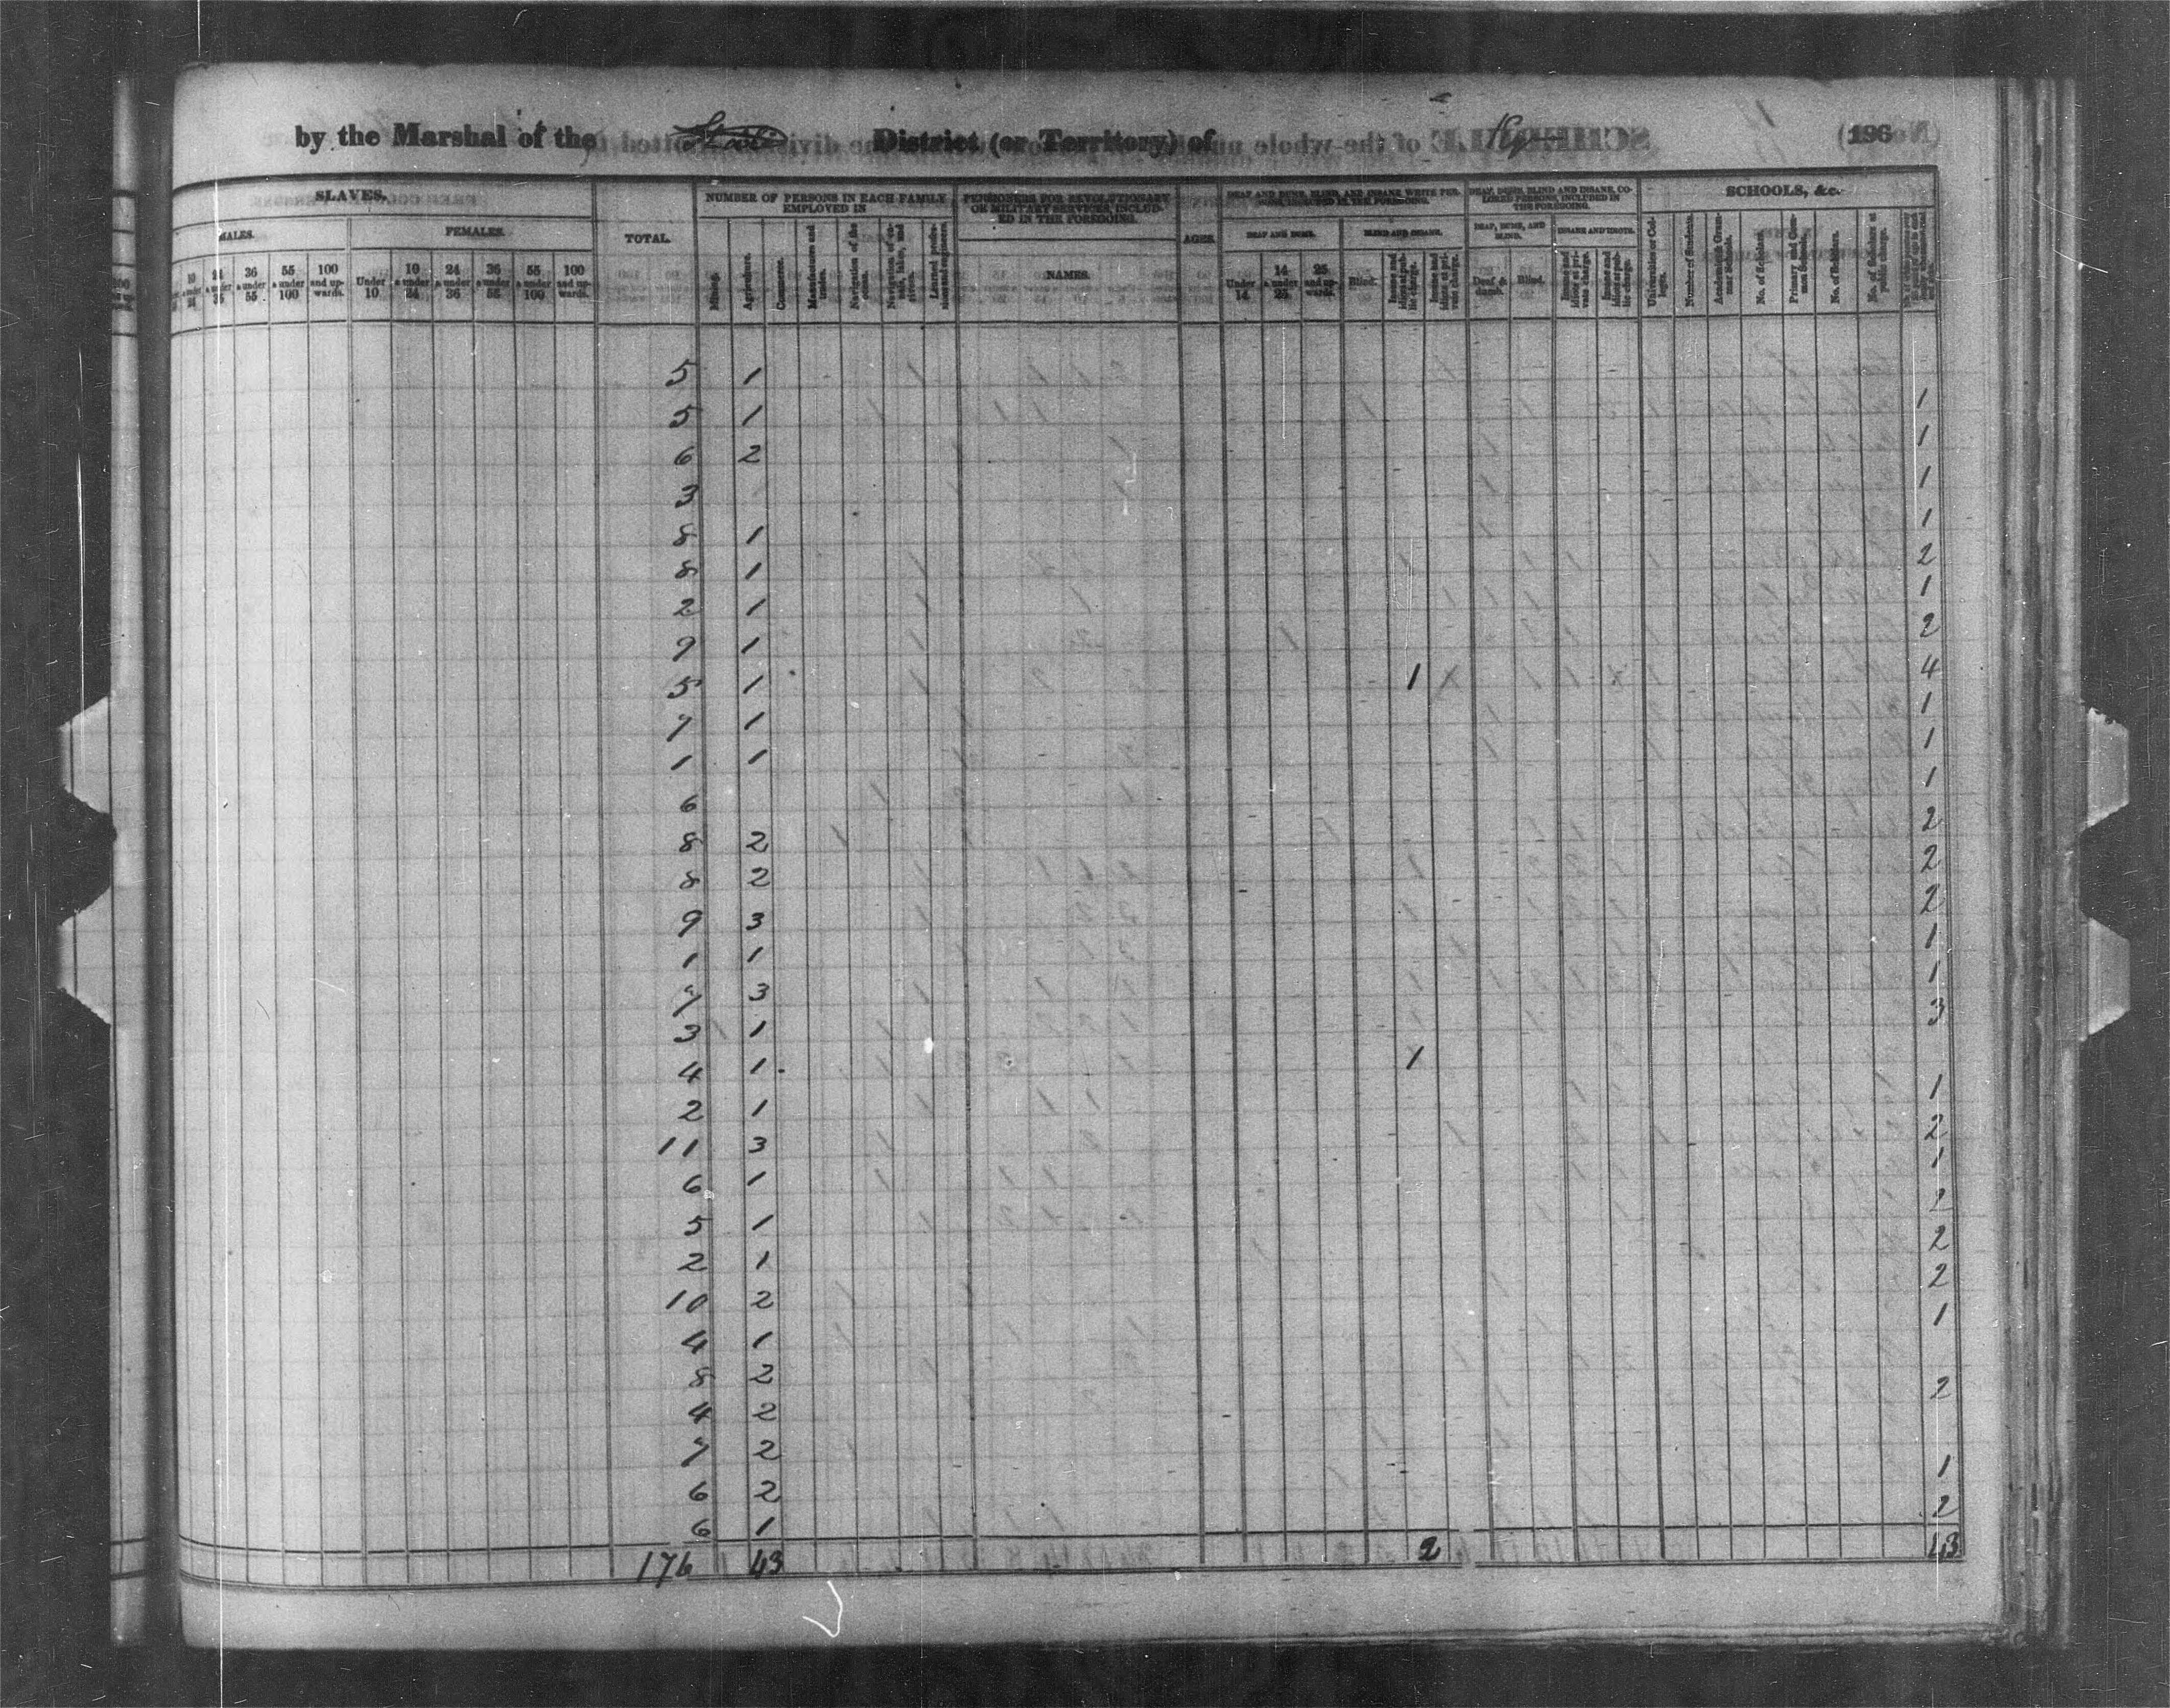 by the Marshal of the State District (or Territory) of Ky (196)
SLAVES. TOTAL. NUMBER OF PERSONS IN EACH FAMILY EMPLOYED IN PENSIONERS FOR REVOLUTIONARY OR MILITARY SERVICES, INCLUDED IN THE FOREGOING. AGES. DEAF AND DUMB, BLIND, AND INSANE WHITE PERSONS, INCLUDED IN THE FOREGOING. DEAF, DUMB, BLIND AND INSANE, COLORED PERSONS, INCLUDED IN THE FOREGOING. SCHOOLS, &c.
MALES. FEMALES. NAMES. DEAF AND DUMB. BLIND AND INSANE. DEAF, DUMB, AND BLIND. INSANE AND IDIOTS.
10 & under 24 24 & under 36 36 & under 55 55 & under 100 100 and upwards. Under 10 10 & under 24 24 & under 36 36 & under 55 55 & under 100 100 and upwards. Mining. Agriculture. Commerce. Manufactures and trades. Navigation of the ocean. Navigation of canals, lakes, and rivers. Learned professions and engineers. Under 14 14 & under 25 25 and upwards. Blind. Insane and idiots at public charge. Insane and idiots at private charge. Deaf & dumb. Blind. Insane and idiots at private charge. Insane and idiots at public charge. Universities or Colleges. Number of Students. Academies & Grammar Schools. No. of Scholars. Primary and Common Schools. No. of Scholars. No. of Scholars at public charge.
5 1
5 1 1
6 2 1
3 1
8 1 1
8 1 2
2 1 1
9 1 2
5 1 1 X 4
7 1 1
1 1 1
6 1
8 2 2
8 2 2
9 3 2
1 1 1
7 3 1
3 1 3
4 1 1
2 1 1
11 3 2
6 1 1
5 1 2
2 1 2
10 2 2
4 1 1
8 2
4 2 2
7 2
6 2 1
6 1 2
176 43 2 43